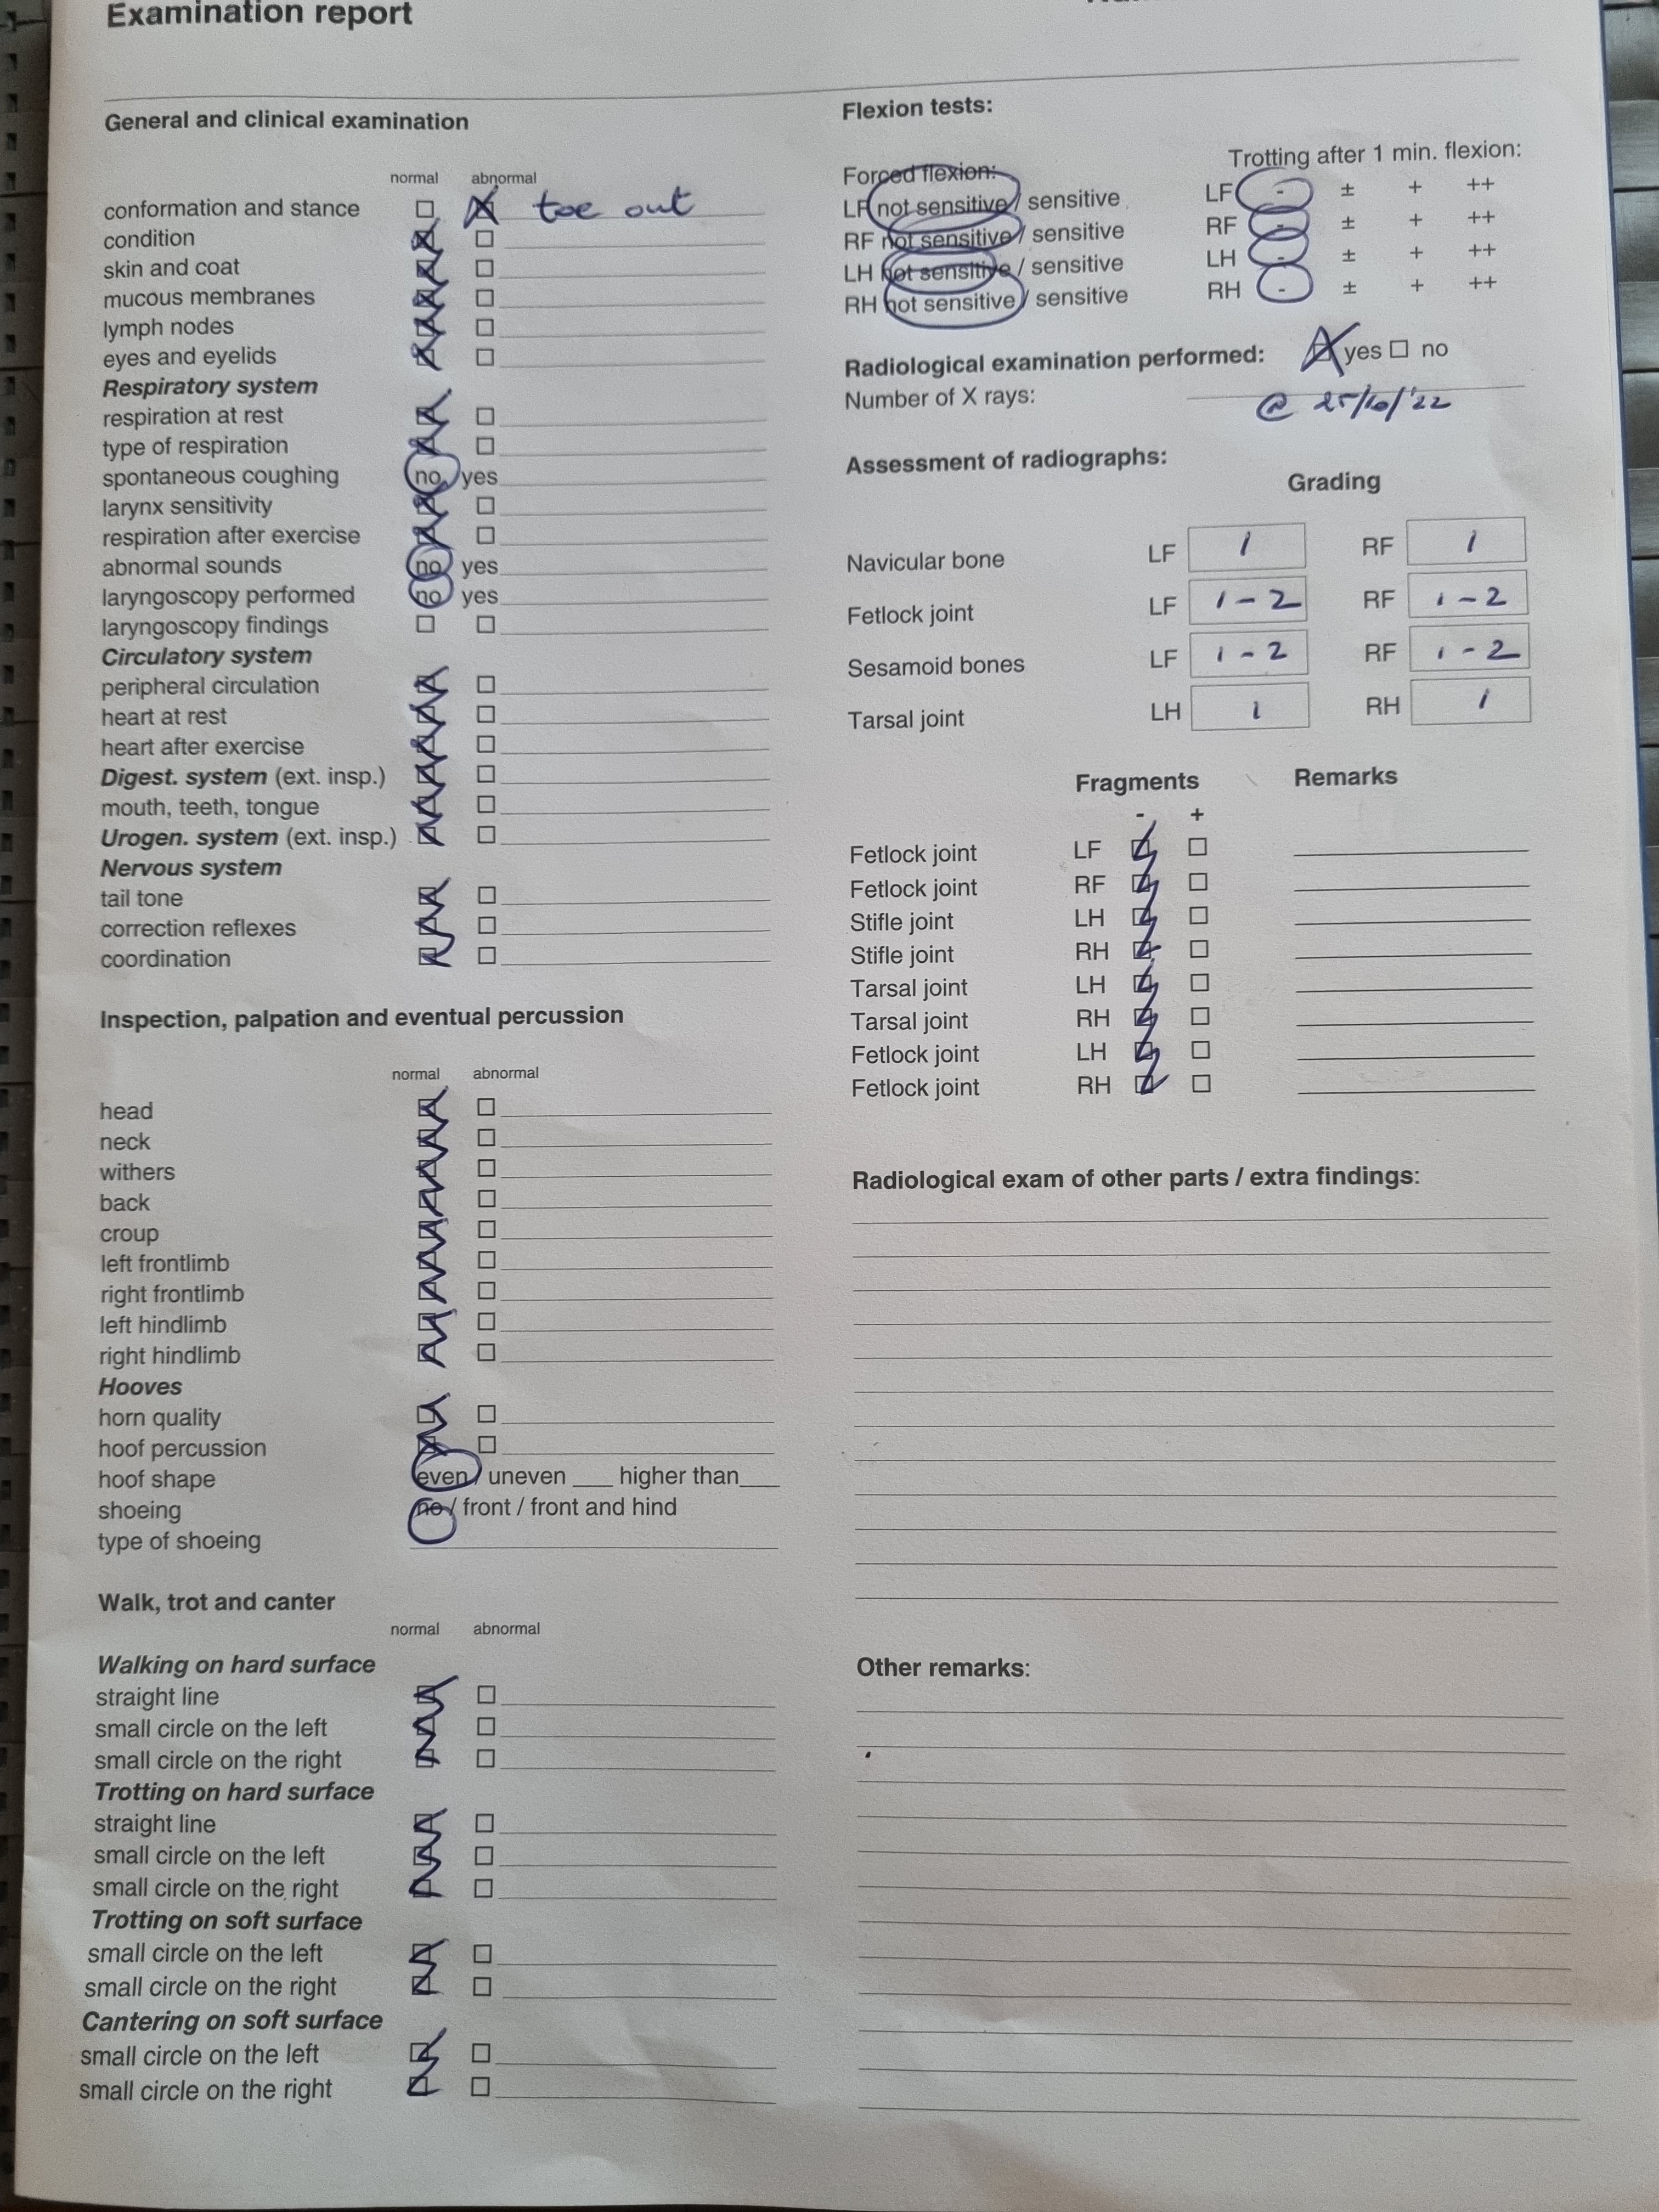 Examination report
General and clinical examination
normal abnormal
conformation and stance toe out
condition
skin and coat
mucous membranes
lymph nodes
eyes and eyelids
Respiratory system
respiration at rest
type of respiration
spontaneous coughing no yes
larynx sensitivity
respiration after exercise
abnormal sounds no yes
laryngoscopy performed no yes
laryngoscopy findings
Circulatory system
peripheral circulation
heart at rest
heart after exercise
Digest. system (ext. insp.)
mouth, teeth, tongue
Urogen. system (ext. insp.)
Nervous system
tail tone
correction reflexes
coordination
Inspection, palpation and eventual percussion
normal abnormal
head
neck
withers
back
croup
left frontlimb
right frontlimb
left hindlimb
right hindlimb
Hooves
horn quality
hoof percussion
hoof shape even / uneven ___ higher than___
shoeing no / front / front and hind
type of shoeing
Walk, trot and canter
normal abnormal
Walking on hard surface
straight line
small circle on the left
small circle on the right
Trotting on hard surface
straight line
small circle on the left
small circle on the right
Trotting on soft surface
small circle on the left
small circle on the right
Cantering on soft surface
small circle on the left
small circle on the right
Flexion tests:
Forced flexion: Trotting after 1 min. flexion:
LF not sensitive / sensitive LF - ± + ++
RF not sensitive / sensitive RF - ± + ++
LH not sensitive / sensitive LH - ± + ++
RH not sensitive / sensitive RH - ± + ++
Radiological examination performed: yes no
Number of X rays: @ 25/10/'22
Assessment of radiographs:
Grading
Navicular bone LF 1 RF 1
Fetlock joint LF 1-2 RF 1-2
Sesamoid bones LF 1-2 RF 1-2
Tarsal joint LH 1 RH 1
Fragments Remarks
- +
Fetlock joint LF
Fetlock joint RF
Stifle joint LH
Stifle joint RH
Tarsal joint LH
Tarsal joint RH
Fetlock joint LH
Fetlock joint RH
Radiological exam of other parts / extra findings:
Other remarks: